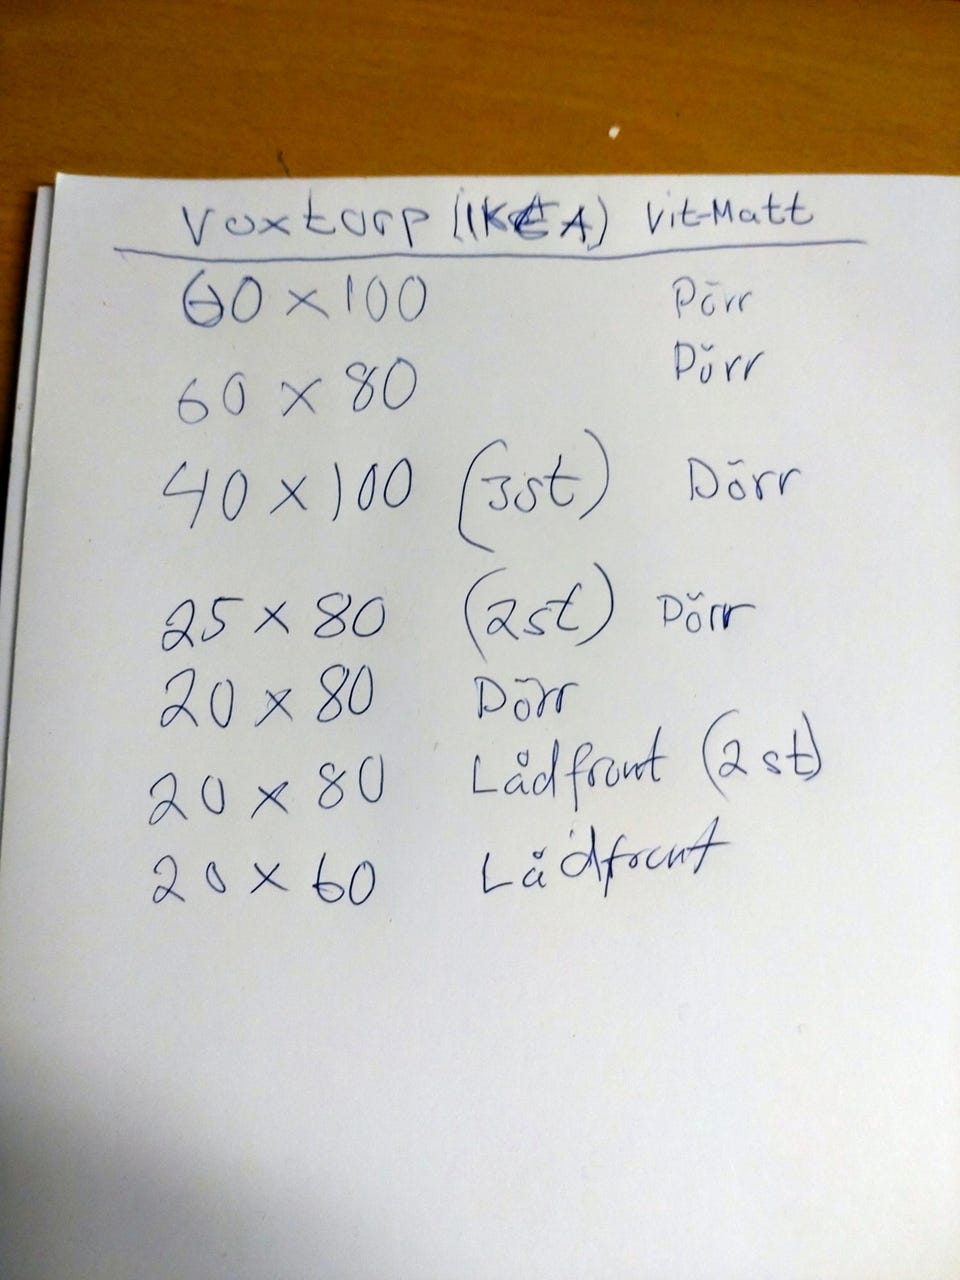 Voxtorp (IKEA) Vit-Matt
60 x 100 Dörr
60 x 80 Dörr
40 x 100 (3st) Dörr
25 x 80 (2st) Dörr
20 x 80 Dörr
20 x 80 Lådfront (2st)
20 x 60 Lådfront